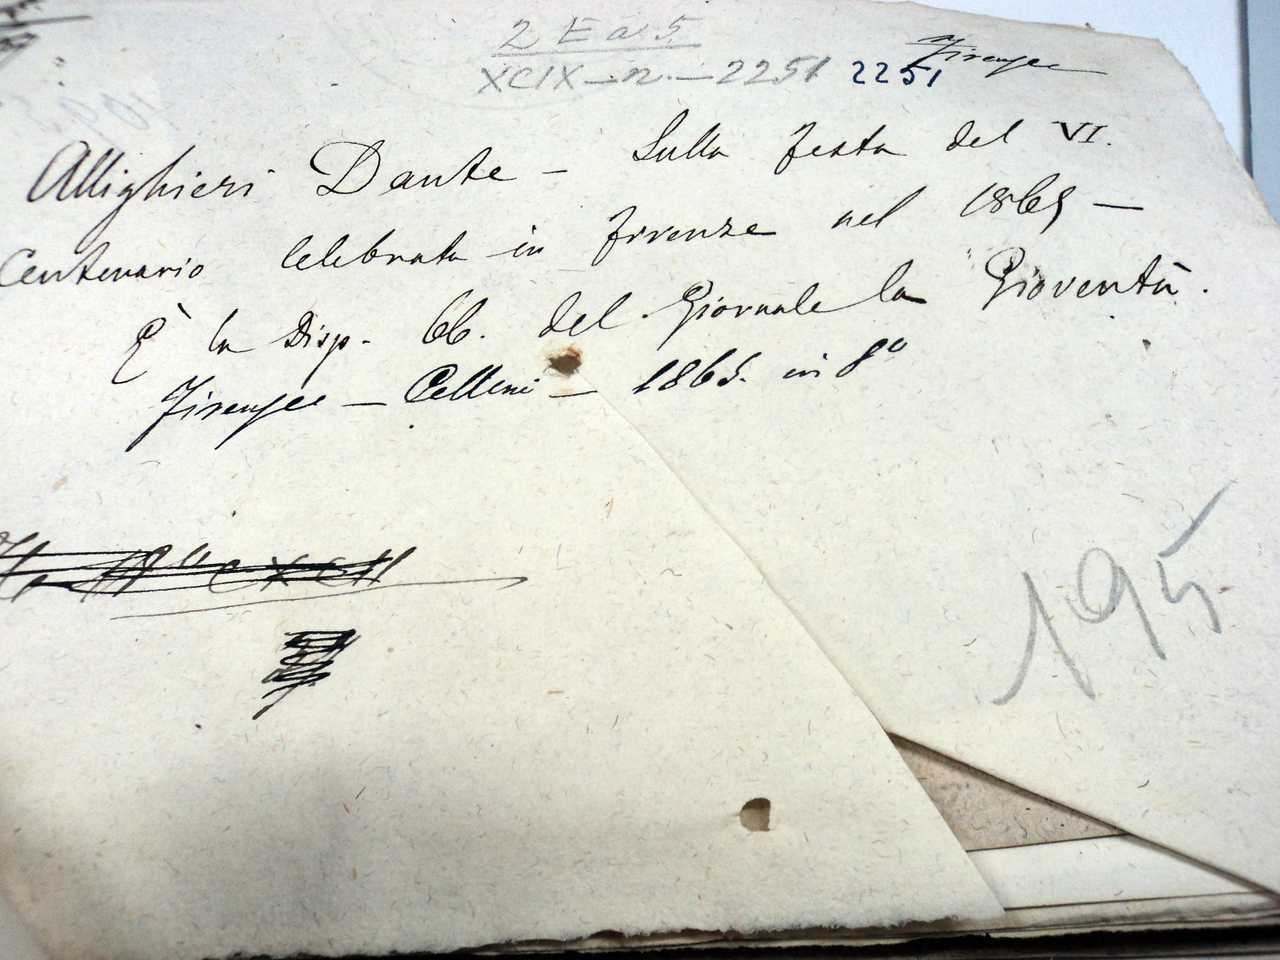 2 E a 5
XCIX - n. - 2251 2251 Firenze
Allighieri Dante - Sulla festa del VI.
Centenario celebrata in Firenze nel 1865 -
È la Disp. 66. del Giornale la Gioventù.
Firenze - Cellini - 1865. in 8º
195